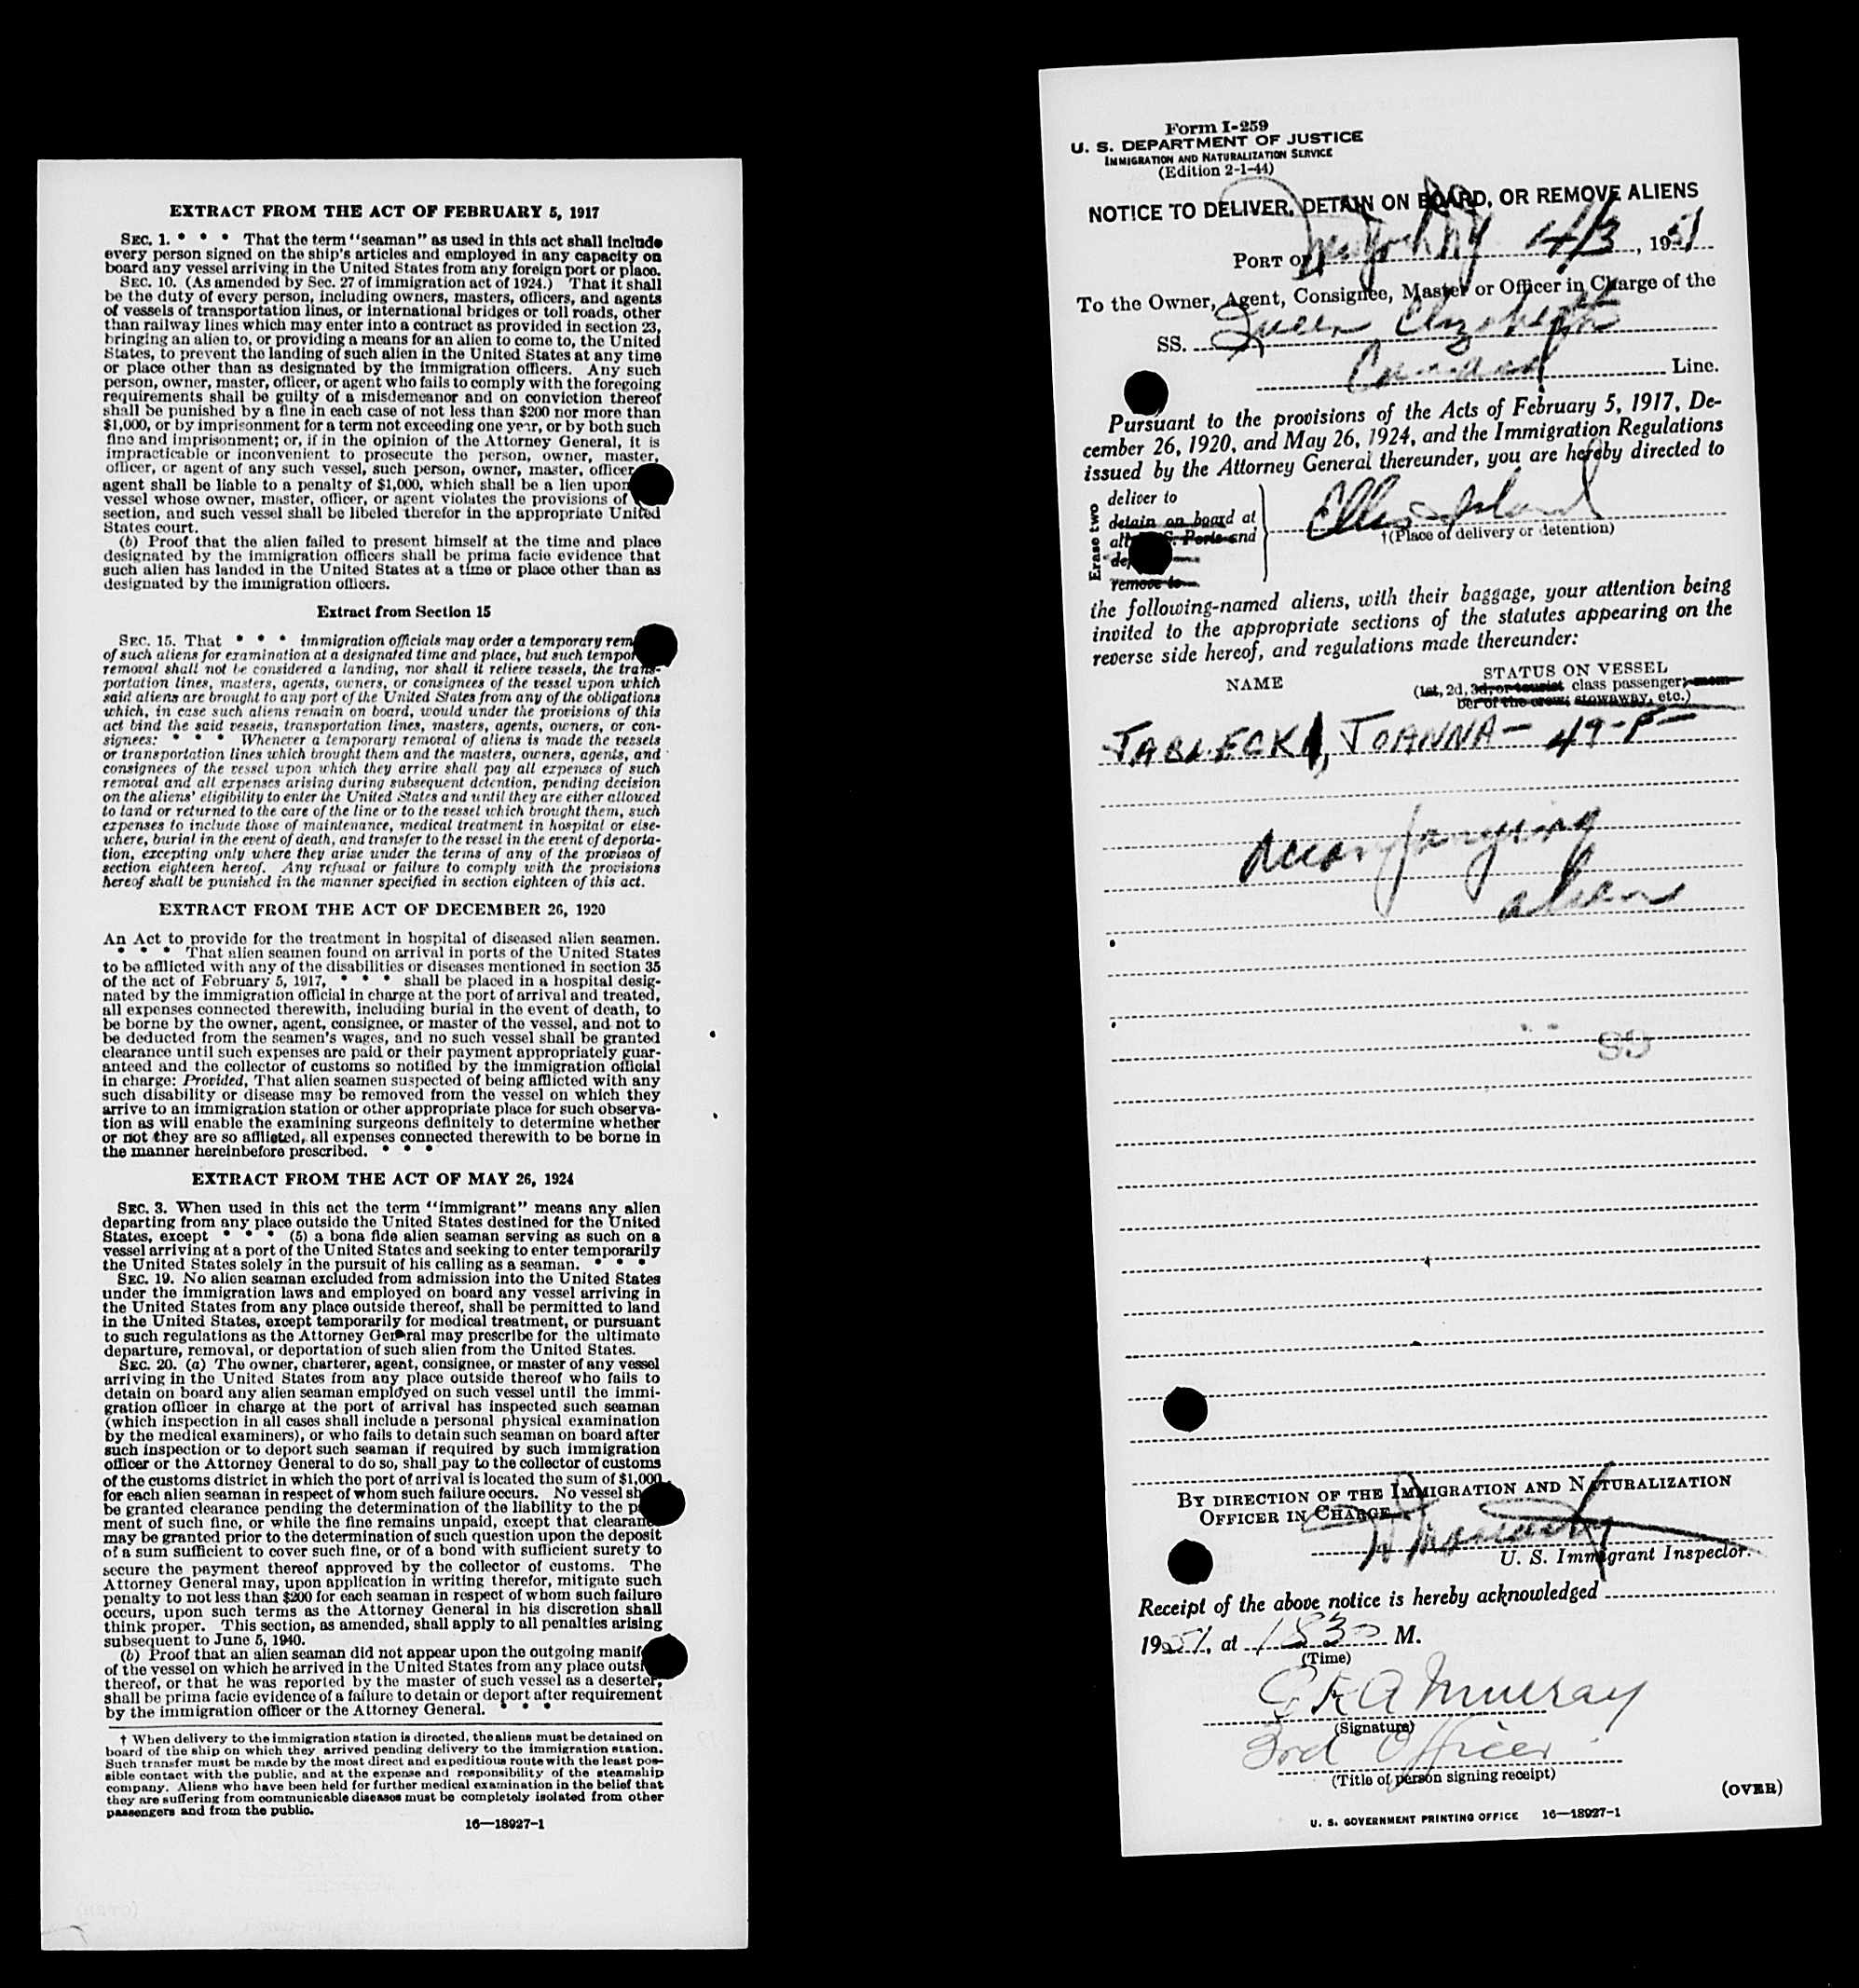 EXTRACT FROM THE ACT OF FEBRUARY 5, 1917
SEC. 1. * * * That the term "seaman" as used in this act shall include
every person signed on the ship's articles and employed in any capacity on
board any vessel arriving in the United States from any foreign port or place.
SEC. 10. (As amended by Sec. 27 of immigration act of 1924.) That it shall
be the duty of every person, including owners, masters, officers, and agents
of vessels of transportation lines, or international bridges or toll roads, other
than railway lines which may enter into a contract as provided in section 23,
bringing an alien to, or providing a means for an alien to come to, the United
States, to prevent the landing of such alien in the United States at any time
or place other than as designated by the immigration officers. Any such
person, owner, master, officer, or agent who fails to comply with the foregoing
requirements shall be guilty of a misdemeanor and on conviction thereof
shall be punished by a fine in each case of not less than $200 nor more than
$1,000, or by imprisonment for a term not exceeding one year, or by both such
fine and imprisonment; or, if in the opinion of the Attorney General, it is
impracticable or inconvenient to prosecute the person, owner, master,
officer, or agent of any such vessel, such person, owner, master, officer
agent shall be liable to a penalty of $1,000, which shall be a lien upon
vessel whose owner, master, officer, or agent violates the provisions of
section, and such vessel shall be libeled therefor in the appropriate United
States court.
(b) Proof that the alien failed to present himself at the time and place
designated by the immigration officers shall be prima facie evidence that
such alien has landed in the United States at a time or place other than as
designated by the immigration officers.
Extract from Section 15
SEC. 15. That * * * immigration officials may order a temporary rem
of such aliens for examination at a designated time and place, but such tempor
removal shall not be considered a landing, nor shall it relieve vessels, the trans-
portation lines, masters, agents, owners, or consignees of the vessel upon which
said aliens are brought to any port of the United States from any of the obligations
which, in case such aliens remain on board, would under the provisions of this
act bind the said vessels, transportation lines, masters, agents, owners, or con-
signees: * * * Whenever a temporary removal of aliens is made the vessels
or transportation lines which brought them and the masters, owners, agents, and
consignees of the vessel upon which they arrive shall pay all expenses of such
removal and all expenses arising during subsequent detention, pending decision
on the aliens' eligibility to enter the United States and until they are either allowed
to land or returned to the care of the line or to the vessel which brought them, such
expenses to include those of maintenance, medical treatment in hospital or else-
where, burial in the event of death, and transfer to the vessel in the event of deporta-
tion, excepting only where they arise under the terms of any of the provisos of
section eighteen hereof. Any refusal or failure to comply with the provisions
hereof shall be punished in the manner specified in section eighteen of this act.
EXTRACT FROM THE ACT OF DECEMBER 26, 1920
An Act to provide for the treatment in hospital of diseased alien seamen.
* * * That alien seamen found on arrival in ports of the United States
to be afflicted with any of the disabilities or diseases mentioned in section 35
of the act of February 5, 1917, * * * shall be placed in a hospital desig-
nated by the immigration official in charge at the port of arrival and treated,
all expenses connected therewith, including burial in the event of death, to
be borne by the owner, agent, consignee, or master of the vessel, and not to
be deducted from the seamen's wages, and no such vessel shall be granted
clearance until such expenses are paid or their payment appropriately guar-
anteed and the collector of customs so notified by the immigration official
in charge: Provided, That alien seamen suspected of being afflicted with any
such disability or disease may be removed from the vessel on which they
arrive to an immigration station or other appropriate place for such observa-
tion as will enable the examining surgeons definitely to determine whether
or not they are so afflicted, all expenses connected therewith to be borne in
the manner hereinbefore prescribed. * * *
EXTRACT FROM THE ACT OF MAY 26, 1924
SEC. 3. When used in this act the term "immigrant" means any alien
departing from any place outside the United States destined for the United
States, except * * * (5) a bona fide alien seaman serving as such on a
vessel arriving at a port of the United States and seeking to enter temporarily
the United States solely in the pursuit of his calling as a seaman. * * *
SEC. 19. No alien seaman excluded from admission into the United States
under the immigration laws and employed on board any vessel arriving in
the United States from any place outside thereof, shall be permitted to land
in the United States, except temporarily for medical treatment, or pursuant
to such regulations as the Attorney General may prescribe for the ultimate
departure, removal, or deportation of such alien from the United States.
SEC. 20. (a) The owner, charterer, agent, consignee, or master of any vessel
arriving in the United States from any place outside thereof who fails to
detain on board any alien seaman employed on such vessel until the immi-
gration officer in charge at the port of arrival has inspected such seaman
(which inspection in all cases shall include a personal physical examination
by the medical examiners), or who fails to detain such seaman on board after
such inspection or to deport such seaman if required by such immigration
officer or the Attorney General to do so, shall pay to the collector of customs
of the customs district in which the port of arrival is located the sum of $1,000
for each alien seaman in respect of whom such failure occurs. No vessel sh
be granted clearance pending the determination of the liability to the p
ment of such fine, or while the fine remains unpaid, except that clearan
may be granted prior to the determination of such question upon the deposit
of a sum sufficient to cover such fine, or of a bond with sufficient surety to
secure the payment thereof approved by the collector of customs. The
Attorney General may, upon application in writing therefor, mitigate such
penalty to not less than $200 for each seaman in respect of whom such failure
occurs, upon such terms as the Attorney General in his discretion shall
think proper. This section, as amended, shall apply to all penalties arising
subsequent to June 5, 1940.
(b) Proof that an alien seaman did not appear upon the outgoing manif
of the vessel on which he arrived in the United States from any place outsi
thereof, or that he was reported by the master of such vessel as a deserter,
shall be prima facie evidence of a failure to detain or deport after requirement
by the immigration officer or the Attorney General. * * *
† When delivery to the immigration station is directed, the aliens must be detained on
board of the ship on which they arrived pending delivery to the immigration station.
Such transfer must be made by the most direct and expeditious route with the least pos-
sible contact with the public, and at the expense and responsibility of the steamship
company. Aliens who have been held for further medical examination in the belief that
they are suffering from communicable diseases must be completely isolated from other
passengers and from the public.
16—18927-1
Form I-259
U. S. DEPARTMENT OF JUSTICE
IMMIGRATION AND NATURALIZATION SERVICE
(Edition 2-1-44)
NOTICE TO DELIVER, DETAIN ON BOARD, OR REMOVE ALIENS
PORT OF New York NY 4/3, 1951
To the Owner, Agent, Consignee, Master or Officer in Charge of the
SS. Queen Elizabeth
Cunard Line.
Pursuant to the provisions of the Acts of February 5, 1917, De-
cember 26, 1920, and May 26, 1924, and the Immigration Regulations
issued by the Attorney General thereunder, you are hereby directed to
Erase two
deliver to
detain on board at
all S. Ports and
dep
remove to
Ellis Island
†(Place of delivery or detention)
the following-named aliens, with their baggage, your attention being
invited to the appropriate sections of the statutes appearing on the
reverse side hereof, and regulations made thereunder:
NAME
STATUS ON VESSEL
(1st, 2d, 3d, or tourist class passenger; mem-
ber of the crew; stowaway, etc.)
JABLECKI, JOANNA - 49-F-
Accompanying
alien
Form 89
BY DIRECTION OF THE IMMIGRATION AND NATURALIZATION
OFFICER IN CHARGE
U. S. Immigrant Inspector.
Receipt of the above notice is hereby acknowledged
1951, at 1830 M.
(Time)
G F A Murray
(Signature)
3rd Officer
(Title of person signing receipt)
(OVER)
U. S. GOVERNMENT PRINTING OFFICE 16—18927-1